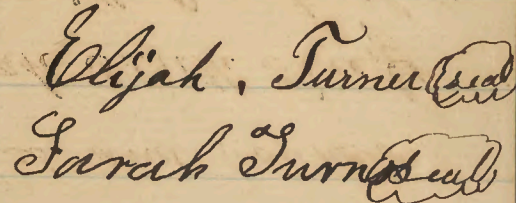 Elijah . Turner seal
Sarah Turner seal